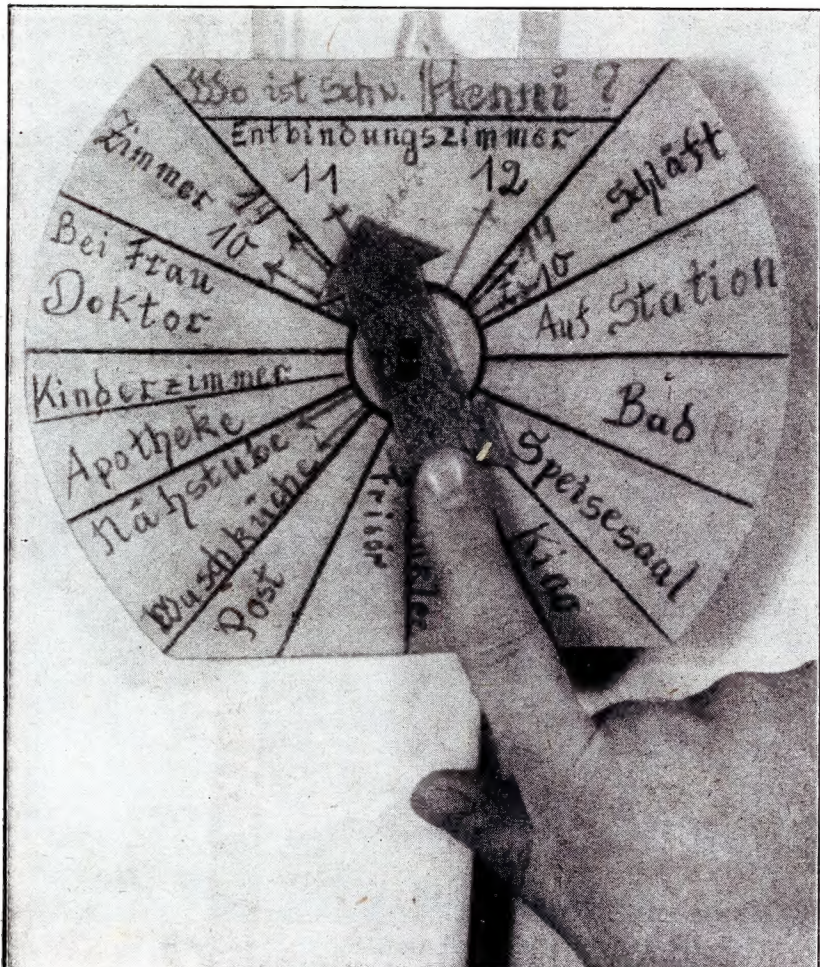 Wo ist Schw. Henni ?
Entbindungszimmer
11 12
Schläft
14
10
Auf Station
Bad
Speisesaal
Kino
Frisör
Post
Waschküche
Nähstube
Apotheke
Kinderzimmer
Bei Frau
Doktor
Zimmer 14
10